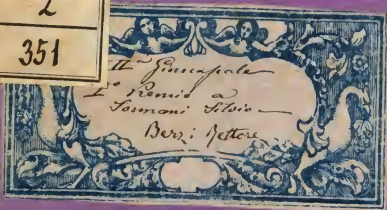 2
351
IIª Ginnasiale
1º Premio a
Sormani Silvio
Berzi Rettore